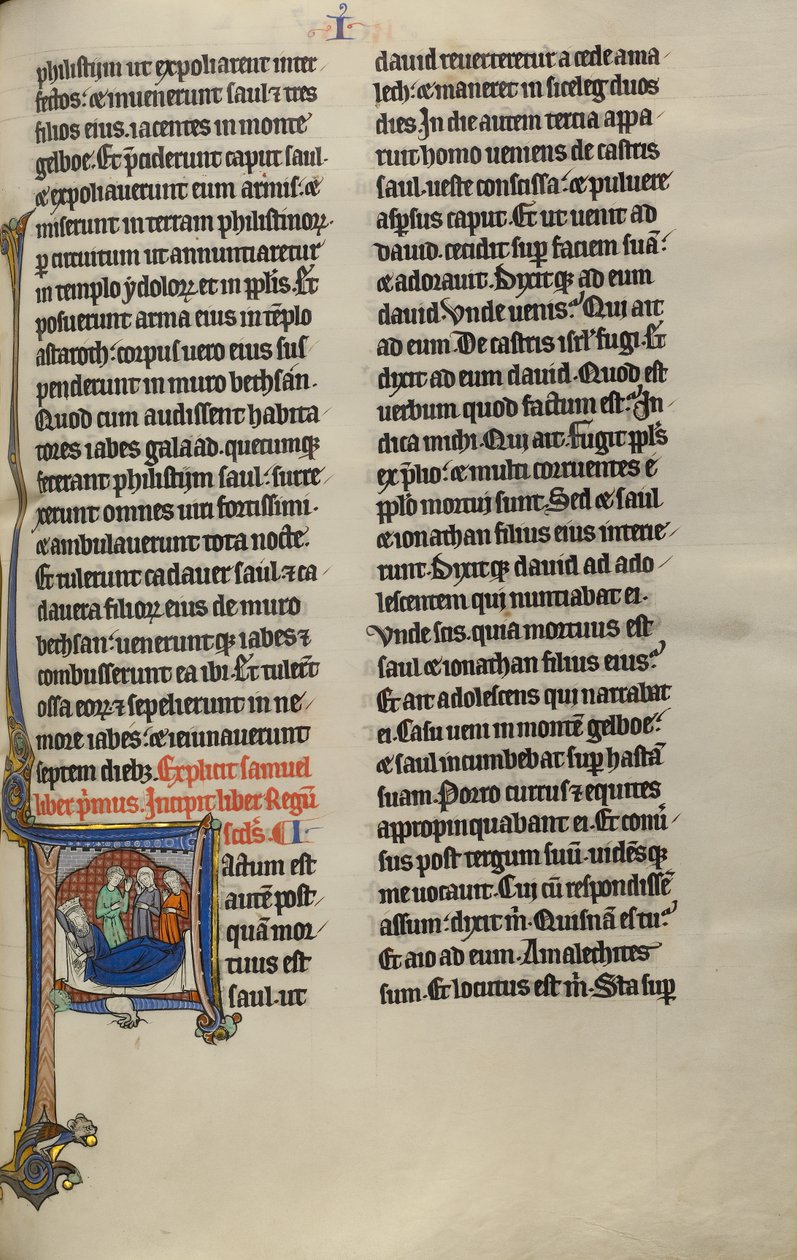 I
philistijm ut expoliarent inter
fectos: ⁊ inuenerunt saul ⁊ tres
filios eius. iacentes in monte
gelboe. Et p̄ciderunt caput saul.
⁊ expoliauerunt eum armis: ⁊
miserunt in terram philistinoꝝ.
ꝑ circuitum ut annuntiaretur
in templo ydoloꝝ. et in ppl̄is. Et
posuerunt arma eius in tēplo
astaroth: corpus uero eius sus
penderunt in muro bethsan.
Quod cum audissent habita
tores iabes galaad. quecumqꝫ
fecerant philistijm saul: surre
xerunt omnes uiri fortissimi.
⁊ ambulauerunt tota nocte.
Et tulerunt cadauer saul. ⁊ ca
dauera filioꝝ eius de muro
bethsan: ueneruntqꝫ iabes ⁊
combusserunt ea ibi. Et tuler̄t
ossa eoꝝ ⁊ sepelierunt in ne
more iabes: ⁊ ieiunauerunt
septem diebꝫ. Explicit samuel
liber p̄mus. Incipit liber Regū
scd̄s. I
actum est
autē post
quā mor
tuus est
saul. ut
dauid reuerteretur a cede ama
lech: ⁊ maneret in siceleg duos
dies. In die autem tercia appa
ruit homo ueniens de castris
saul. ueste conscissa: ⁊ puluere
aspersus caput. Et ut uenit ad
dauid. cecidit suꝑ faciem suā:
⁊ adorauit. Dixitqꝫ ad eum
dauid. Vnde uenis? Qui ait
ad eum. De castris isrl̄ fugi. Et
dixit ad eum dauid. Quod est
uerbum quod factum est? In
dica michi. Qui ait. Fugit ppl̄s
ex p̄lio: ⁊ multi corruentes e
ppl̄o mortui sunt. Sed ⁊ saul
⁊ ionathan filius eius interie
runt. Dixitqꝫ dauid ad ado
lescentem qui nuntiabat ei.
Vnde scis. quia mortuus est
saul ⁊ ionathan filius eius?
Et ait adolescens qui narrabat
ei. Casu ueni in montē gelboe:
⁊ saul incumbebat suꝑ hastā
suam. Porro currus ⁊ equites
appropinquabant ei. Et conū
sus post tergum suū. uidēsqꝫ
me uocauit. Cui cū respondissē
assum: dixit m̄. Quisnā es tu?
Et aio ad eum. Amalechites
sum. Et locutus est m̄. Sta suꝑ